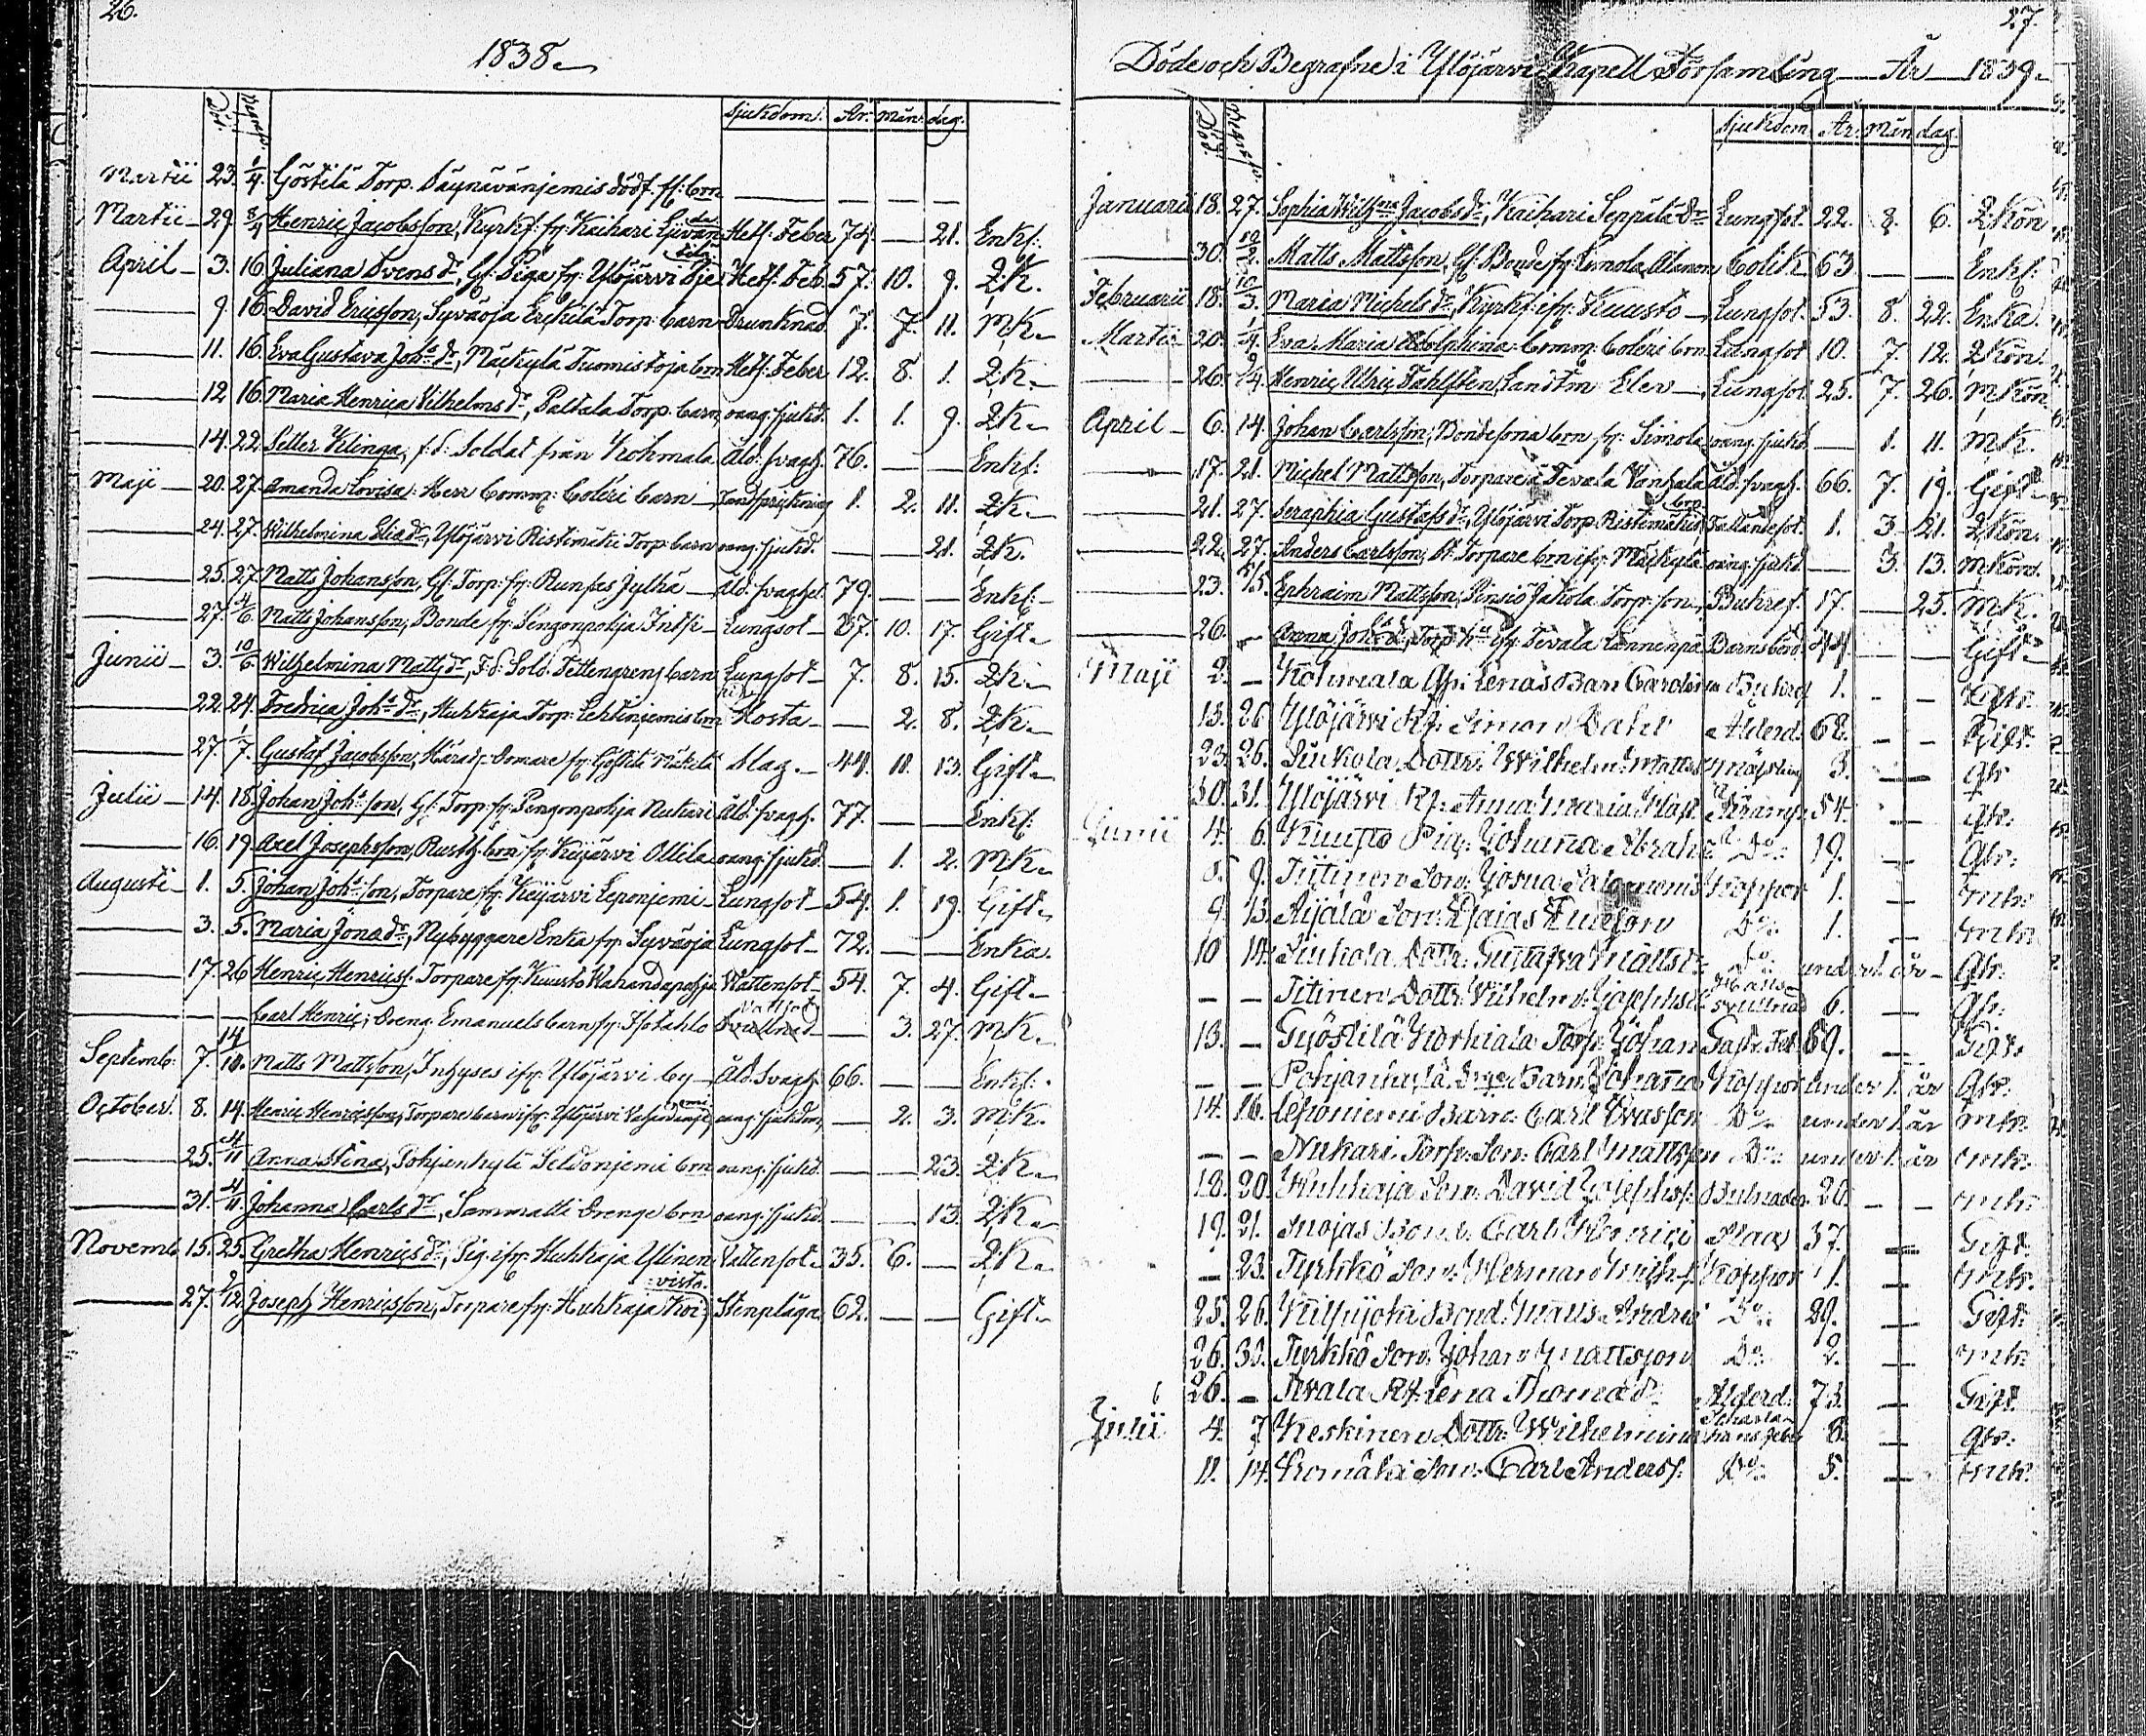 26.
1838
Död. Begrafn. Sjukdom. År. mån. dag.
Martii 23. 1/4. Göstilä Torp. Säynävänjemis dödf. fl: brn
Martii 29. 8/4 Henric Jacobsson, Kyrkf: fr: Kaihari Hets: Feber 74. 21. Enkl:
April 3. 16. Juliana Svens dr, Gl: Piga fr: Ylöjärvi Hets: Feb. 57. 10. 9. Q.K.
9. 16. David Ericsson, Syväoja Erkkilä Torp: barn Drunknad 7. 7. 11. M.K.
11. 16. Eva Gustava Johs dr, Mäckylä Tuomistoja brn Hets: Feber 12. 8. 1. Q.K.
12 16. Maria Henrica Vilhelms dr, Paltala Torp. barn, oang. sjukd. 1. 1. 9. Q.K.
14. 22. Petter Klinga, f. d: Soldat från Kohmala Åld. svagh. 76. Enkl:
Maji 20. 27. Amanda Lovisa: Herr Comm: Coléri barn Tandsprickning 1. 2. 11. Q.K.
24. 27. Wilhelmina Elia dr, Ylöjärvi Ristimäki Torp barn oang. sjukd. 21. Q.K.
25. 27. Matts Johansson, Gl: Torp: fr: Runsas Jylhä Åld. svaghet. 79. Enkl:
27. 4/6. Matts Johansson, Bonde fr: Pengonpohja Intsi Lungsot 37. 10. 17. Gift
Junii 3. 10/6 Wilhelmina Matts dr, F. d. Sold. Tettengrens barn Lungsot 7. 8. 15. Q.K.
22. 24. Fredrica Johs dr, Huhkaja Torp: Lehtinjemis brn Hosta 2. 8. Q.K.
27. 1/7. Gustaf Jacobsson, Härads-Domare fr: Göstilä Mäkelä Slag. 44. 11. 13. Gift
Julii 14. 18. Johan Johs son, Gl: Torp: fr: Pengonpohja Nukari Åld. svagh. 77. Enkl:
16. 19 Axel Josephsson, Rusth. brn fr: Keijärvi Ollila oang: sjukd. 1. 2. M.K.
Augusti 1. 5. Johan Johs son, Torpare fr: Keijärvi Leponjemi Lungsot 54. 1. 19. Gift
3. 5. Maria Jona dr, Nybyggare Enka fr: Syväoja Lungsot 72. Enka.
17. 26 Henric Henricss. Torpare fr: Kuusto Wahandapohja Wattensot 54. 7. 4. Gift
Carl Henric, Dreng Emanuels barn fr: Isotahlo 3. 27. M.K.
Septemb: 7. 14/10. Matts Mattsson, Inhyses ifr: Ylöjärvi by Åld. Svagh. 66. Enkl:
October. 8. 14. Henric Henricsson, Torpare barn ifr: Ylöjärvi oang. sjukdom, 2. 3. M.K.
25. 4/11 Anna Stina, Pohjenkylä Seldonjemi brn oang: sjukd. 23. Q.K.
31. 4/11 Johanna Carls dr, Sammatti Drenge brn oang. sjukd. 13. Q.K.
Novemb 15. 25. Gretha Henrics dr, Pig. ifr: Huhkaja Ylinen Vattensot 35. 6. Q.K.
27. 9/12. Joseph Henricsson, Torpare fr: Huhkaja Koi:visto. Stenplåga 62. Gift
27.
Döde och Begrafne i Ylöjärvi Kapell Församling År 1839.
Död. Begrafn. Sjukdom. År. Mån. dag.
Januarii 18. 27. Sophia Wilhna Jacobs dr, Kaihari Seppälä Dr Lungsot. 22. 8. 6. Q Kön
30. 10/2. Matts Mattsson, Gl: Bonde fr: Simola Alanen Colik 63. Enkl:
Februarii 18. 10/3. Maria Michels dr, Kyrkf: ifr: Kuusto Lungsot. 53. 8. 22. Enka.
Martii 20. 1/4. Eva Maria Adolphina: Comm: Coléri brn Lungsot 10. 7. 12. Q Kön.
26. Henric Ulric Fahlsten, Landtm Elev Lungsot. 25. 7. 26. M Kön
April 6. 14. Johan Carlsson, Bondesona brn fr: Simola oang. sjukd. 1. 11. M K.
17. 21. Michel Mattsson, Torpare fr: Tevala Vanhala Åld. svagh. 66. 7. 19. Gift
21. 27. Seraphia Gustafs dr, Ylöjärvi Torp. Ristimäki brn Fallandesot. 1. 3. 21. Q Kön.
22. 27. Anders Carlsson, St. Torpare brn ifr: Mäckylä oang. sjukd. 3. 13. M Kön.
23. 5/5. Ephraim Mattsson, Pinsiö Jakola Torp: son, Bukref. 17. 25. M K.
26. Anna Johs dr, Torp: ha ifr: Tevala Lännenpä Barnsbörd. 44. Gift
Maji 2. Kohmala Barn Bukref 1. Qk.
13. 26 Ylöjärvi Kf: Simon Dahl Ålderd. 62. Gift.
23. 26. Siukola Dottr: Wilhelm: Matts Mässling 3. Qk
30. 31. Ylöjärvi Kf: Anna Maria 54. Qk.
Junii 4. 6. Kuusto Pig: Johanna Abrah: Do: 19. Qk:
8. 9. Tiitinen Son: Josua Salomonis Koppor 1. mk:
9. 13. Aijälä Son: Esaias Do: 1. mk.
10 14. Siukola Dottr: Gustafva Matts dr Do. under 1. år Qk.
Titinen Dottr. Vilhelm: Josephs dr Hals svullnad 6. Qk:
13. Gyöstilä Korhiala Torp: Johan Gastr. Feb. 69. Gift.
Pohjankylä Barn: Johanna Koppor under 1. år Qk:
14. 16. Leponiemi Barn: Carl Do: under 1. år mk:
Nukari Torp: Son: Carl Mattsson Do: under 1. år mk:
18. 20. Huhkaja Son: David Josephs: 26 mk:
19. 21. Bond: Carl Henrici Slag 37. Gift.
23. Tyrkkö Son: Herman Mich: Koppor 1. mk.
25. 26. Kilpijoki Bond: Matts Andrei Do: 29. Gift.
26. 30. Tyrkkö Son: Johan Mattsson Do: 2. mk:
26. Tevala Lena Thomæ dr. Ålderd: 73. Gift
Julii 4. 7 Keskinen Dottr: Wilhelmina Scharlakans feber 6. Qk:
11. 14. Komäki Son: Carl Anderss: Do: 5. mk.